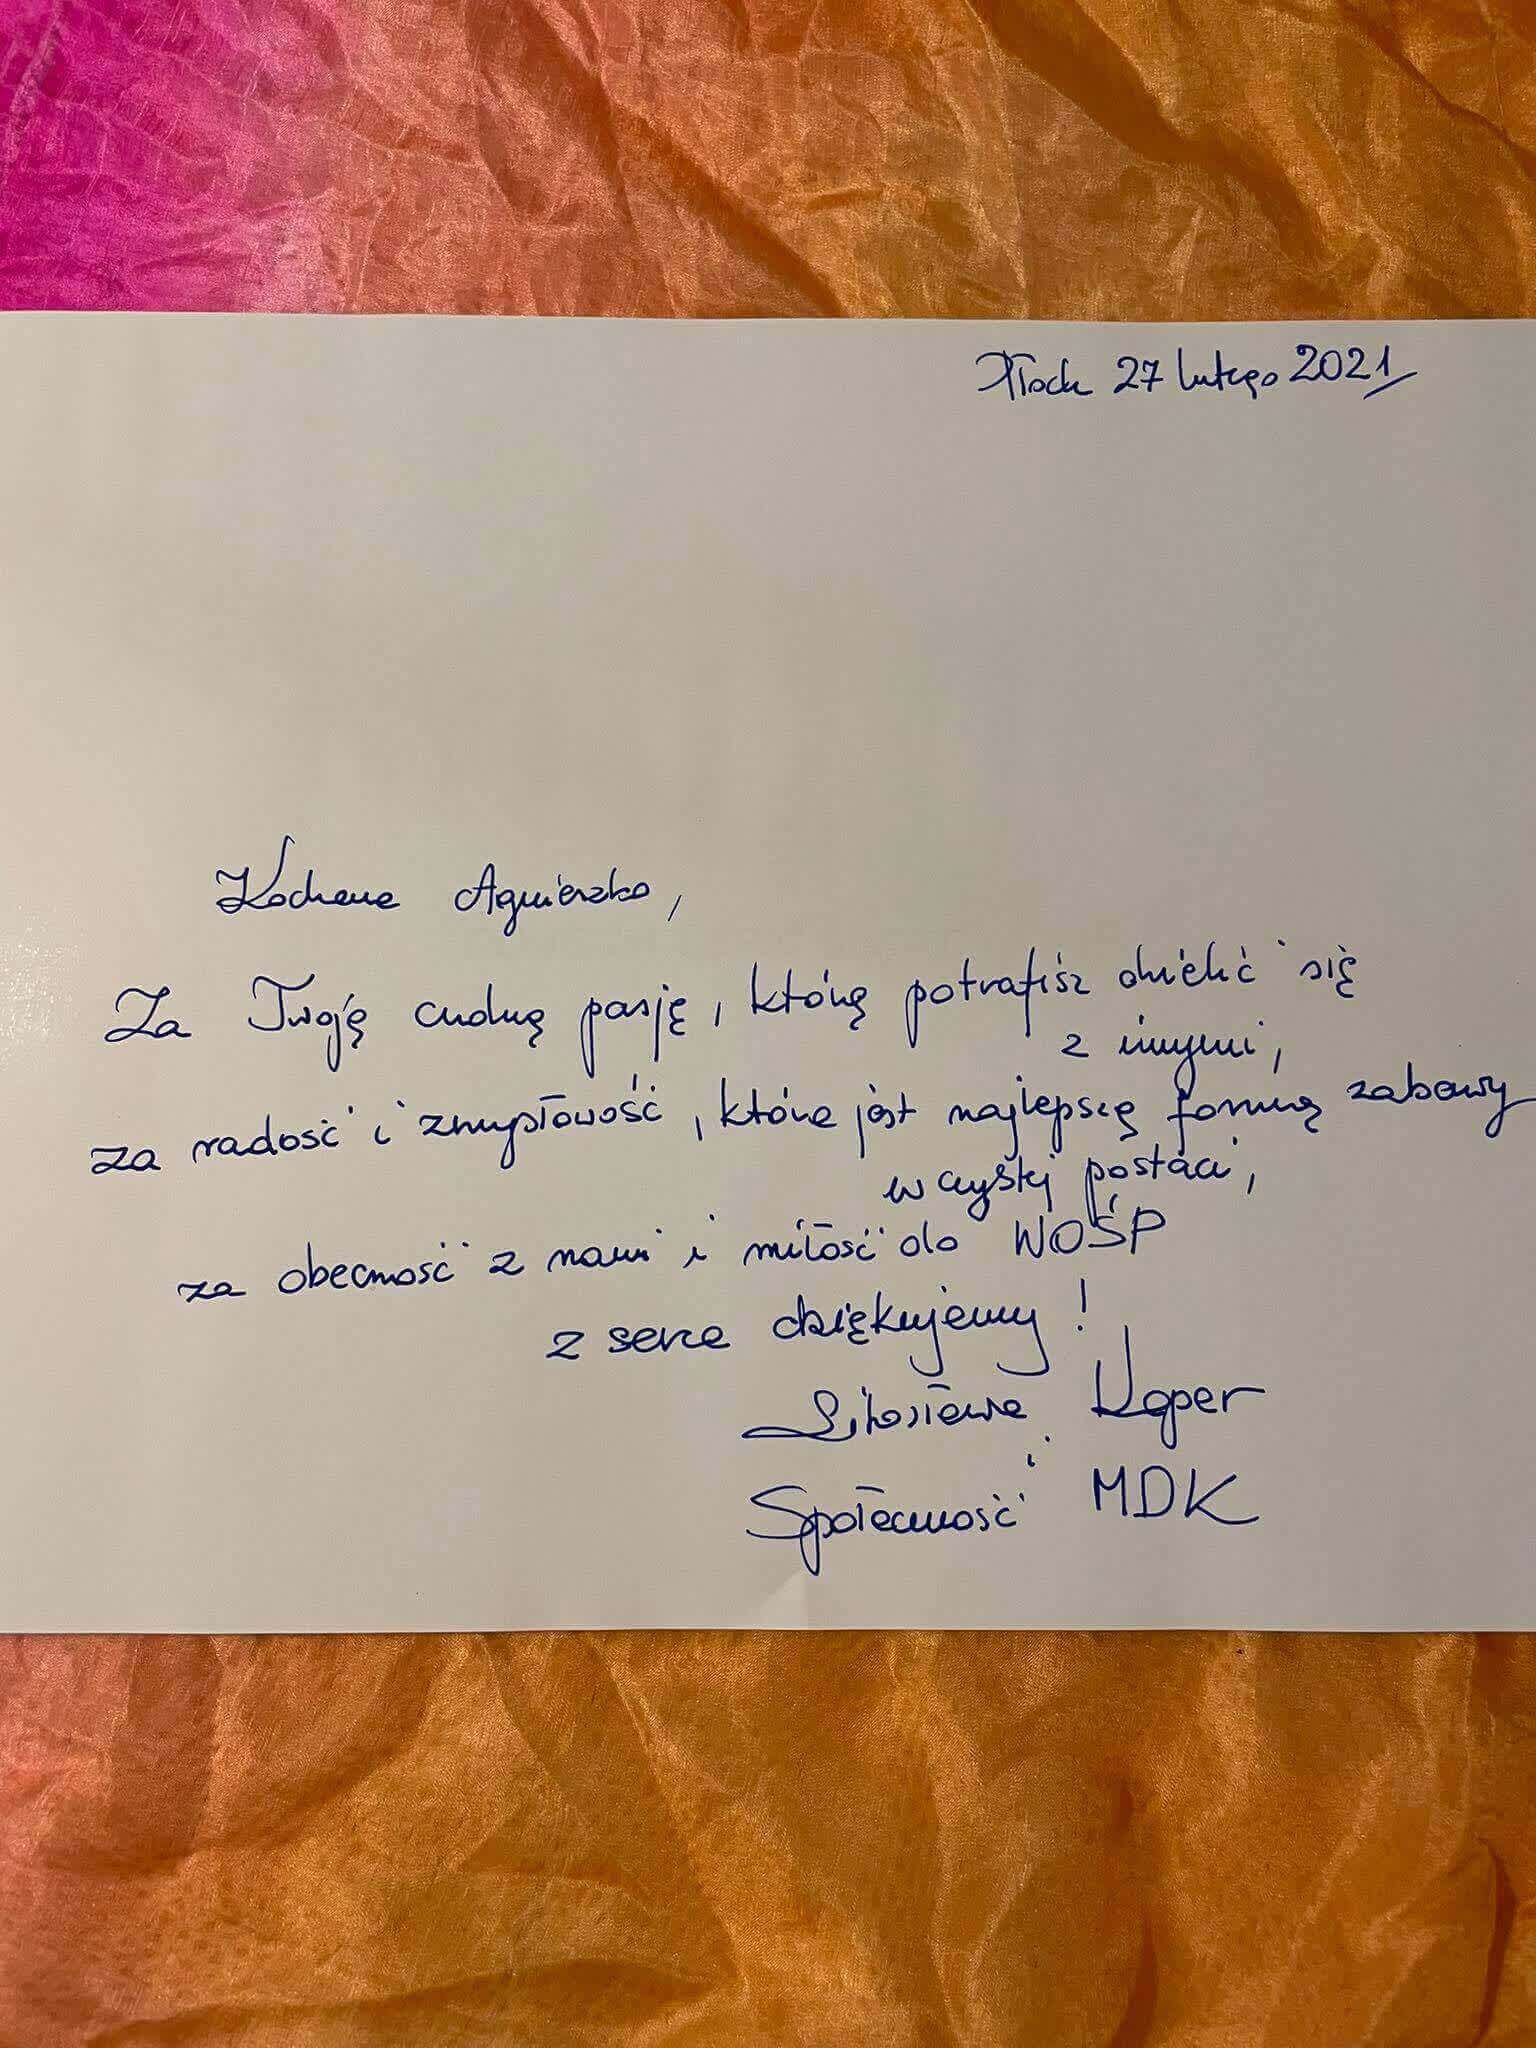 Płock 27 lutego 2021
Kochana Agnieszko,
Za Twoją cudną pasję, którą potrafisz dzielić się
z innymi,
za radość i zmysłowość, która jest najlepszą formą zabawy
w czystej postaci,
za obecność z nami i miłość do WOŚP
z serca dziękujemy!
Kąper
i
Społeczność MDK